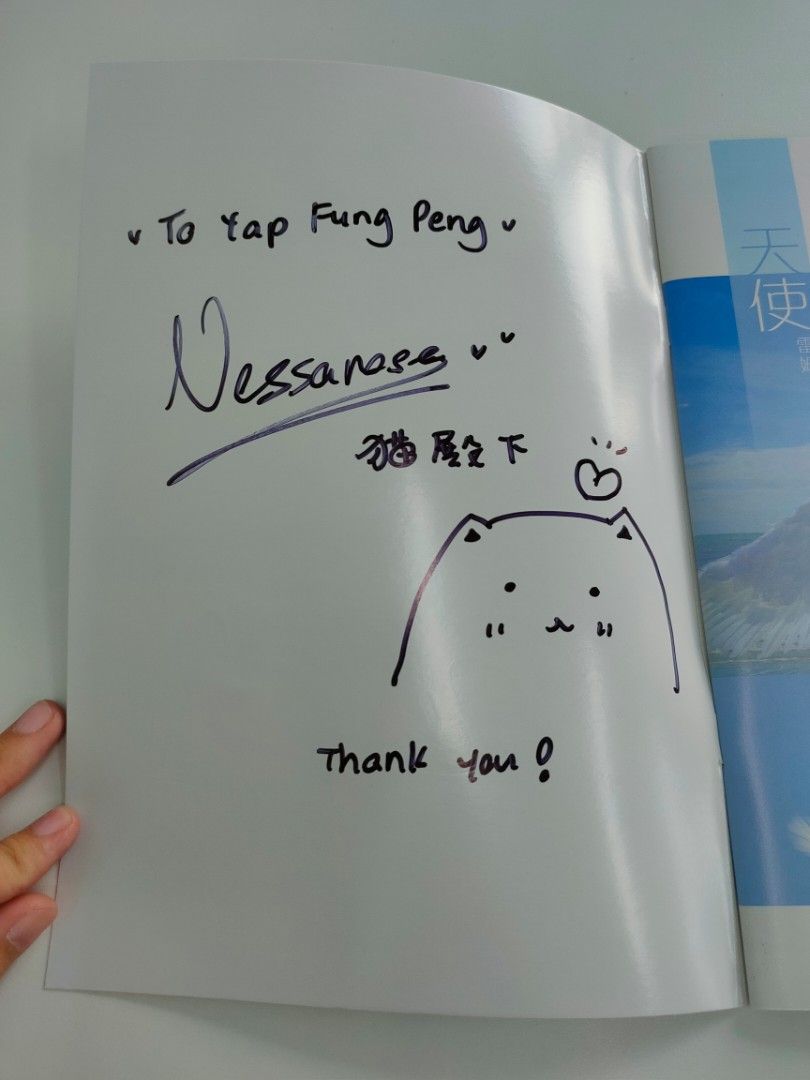 To Yap Fung Peng
Nessarose
猫殿下
Thank you!
天使